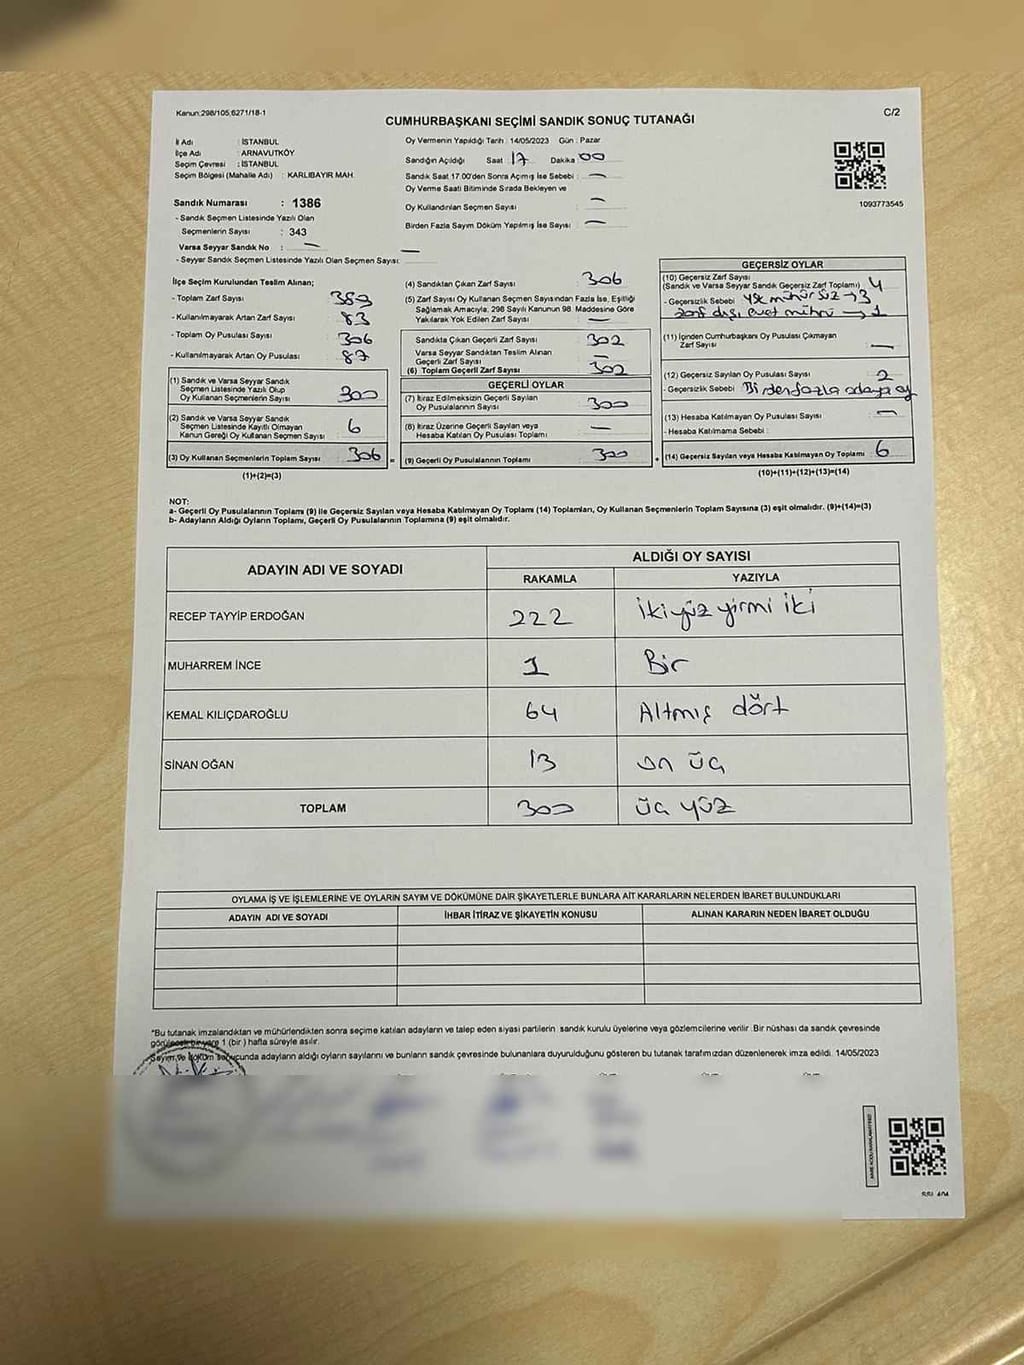 Kanun:298/105,6271/18-1
C/2
CUMHURBAŞKANI SEÇİMİ SANDIK SONUÇ TUTANAĞI
İl Adı : İSTANBUL
İlçe Adı : ARNAVUTKÖY
Seçim Çevresi : İSTANBUL
Seçim Bölgesi (Mahalle Adı) : KARLIBAYIR MAH.
Sandık Numarası : 1386
- Sandık Seçmen Listesinde Yazılı Olan
Seçmenlerin Sayısı : 343
Varsa Seyyar Sandık No : —
- Seyyar Sandık Seçmen Listesinde Yazılı Olan Seçmen Sayısı: —
Oy Vermenin Yapıldığı Tarih : 14/05/2023 Gün : Pazar
Sandığın Açıldığı Saat 17 Dakika 00
Sandık Saat 17.00'den Sonra Açmış İse Sebebi : —
Oy Verme Saati Bitiminde Sırada Bekleyen ve
Oy Kullandırılan Seçmen Sayısı : —
Birden Fazla Sayım Döküm Yapılmış İse Sayısı : —
1093773545
İlçe Seçim Kurulundan Teslim Alınan;
- Toplam Zarf Sayısı
- Kullanılmayarak Artan Zarf Sayısı : 83
- Toplam Oy Pusulası Sayısı : 306
- Kullanılmayarak Artan Oy Pusulası : 87
(1) Sandık ve Varsa Seyyar Sandık
Seçmen Listesinde Yazılı Olup
Oy Kullanan Seçmenlerin Sayısı : 300
(2) Sandık ve Varsa Seyyar Sandık
Seçmen Listesinde Kayıtlı Olmayan
Kanun Gereği Oy Kullanan Seçmen Sayısı : 6
(3) Oy Kullanan Seçmenlerin Toplam Sayısı : 306
(1)+(2)=(3)
(4) Sandıktan Çıkan Zarf Sayısı : 306
(5) Zarf Sayısı Oy Kullanan Seçmen Sayısından Fazla İse, Eşitliği
Sağlamak Amacıyla, 298 Sayılı Kanunun 98. Maddesine Göre
Yakılarak Yok Edilen Zarf Sayısı : —
Sandıkta Çıkan Geçerli Zarf Sayısı : 302
Varsa Seyyar Sandıktan Teslim Alınan
Geçerli Zarf Sayısı : —
(6) Toplam Geçerli Zarf Sayısı : 302
GEÇERLİ OYLAR
(7) İtiraz Edilmeksizin Geçerli Sayılan
Oy Pusulalarının Sayısı : 300
(8) İtiraz Üzerine Geçerli Sayılan veya
Hesaba Katılan Oy Pusulası Toplamı : —
= (9) Geçerli Oy Pusulalarının Toplamı : 300
GEÇERSİZ OYLAR
(10) Geçersiz Zarf Sayısı
(Sandık ve Varsa Seyyar Sandık Geçersiz Zarf Toplamı) : 4
- Geçersizlik Sebebi : YSK mühürsüz → 3
zarf dışı evet mührü → 1
(11) İçinden Cumhurbaşkanı Oy Pusulası Çıkmayan
Zarf Sayısı : —
(12) Geçersiz Sayılan Oy Pusulası Sayısı : 2
- Geçersizlik Sebebi : Birden fazla adaya oy
(13) Hesaba Katılmayan Oy Pusulası Sayısı : —
- Hesaba Katılmama Sebebi :
+ (14) Geçersiz Sayılan veya Hesaba Katılmayan Oy Toplamı : 6
(10)+(11)+(12)+(13)=(14)
NOT:
a- Geçerli Oy Pusulalarının Toplamı (9) ile Geçersiz Sayılan veya Hesaba Katılmayan Oy Toplamı (14) Toplamları, Oy Kullanan Seçmenlerin Toplam Sayısına (3) eşit olmalıdır. (9)+(14)=(3)
b- Adayların Aldığı Oyların Toplamı, Geçerli Oy Pusulalarının Toplamına (9) eşit olmalıdır.
ADAYIN ADI VE SOYADI
ALDIĞI OY SAYISI
RAKAMLA YAZIYLA
RECEP TAYYİP ERDOĞAN 222 İkiyüz yirmi iki
MUHARREM İNCE 1 Bir
KEMAL KILIÇDAROĞLU 64 Altmış dört
SİNAN OĞAN 13 on üç
TOPLAM 300 üç yüz
OYLAMA İŞ VE İŞLEMLERİNE VE OYLARIN SAYIM VE DÖKÜMÜNE DAİR ŞİKAYETLERLE BUNLARA AİT KARARLARIN NELERDEN İBARET BULUNDUKLARI
ADAYIN ADI VE SOYADI İHBAR İTİRAZ VE ŞİKAYETİN KONUSU ALINAN KARARIN NEDEN İBARET OLDUĞU
*Bu tutanak imzalandıktan ve mühürlendikten sonra seçime katılan adayların ve talep eden siyasi partilerin sandık kurulu üyelerine veya gözlemcilerine verilir. Bir nüshası da sandık çevresinde
görülecek bir yere 1 (bir) hafta süreyle asılır.
Sayım ve döküm sonucunda adayların aldığı oyların sayılarını ve bunların sandık çevresinde bulunanlara duyurulduğunu gösteren bu tutanak tarafımızdan düzenlenerek imza edildi. 14/05/2023